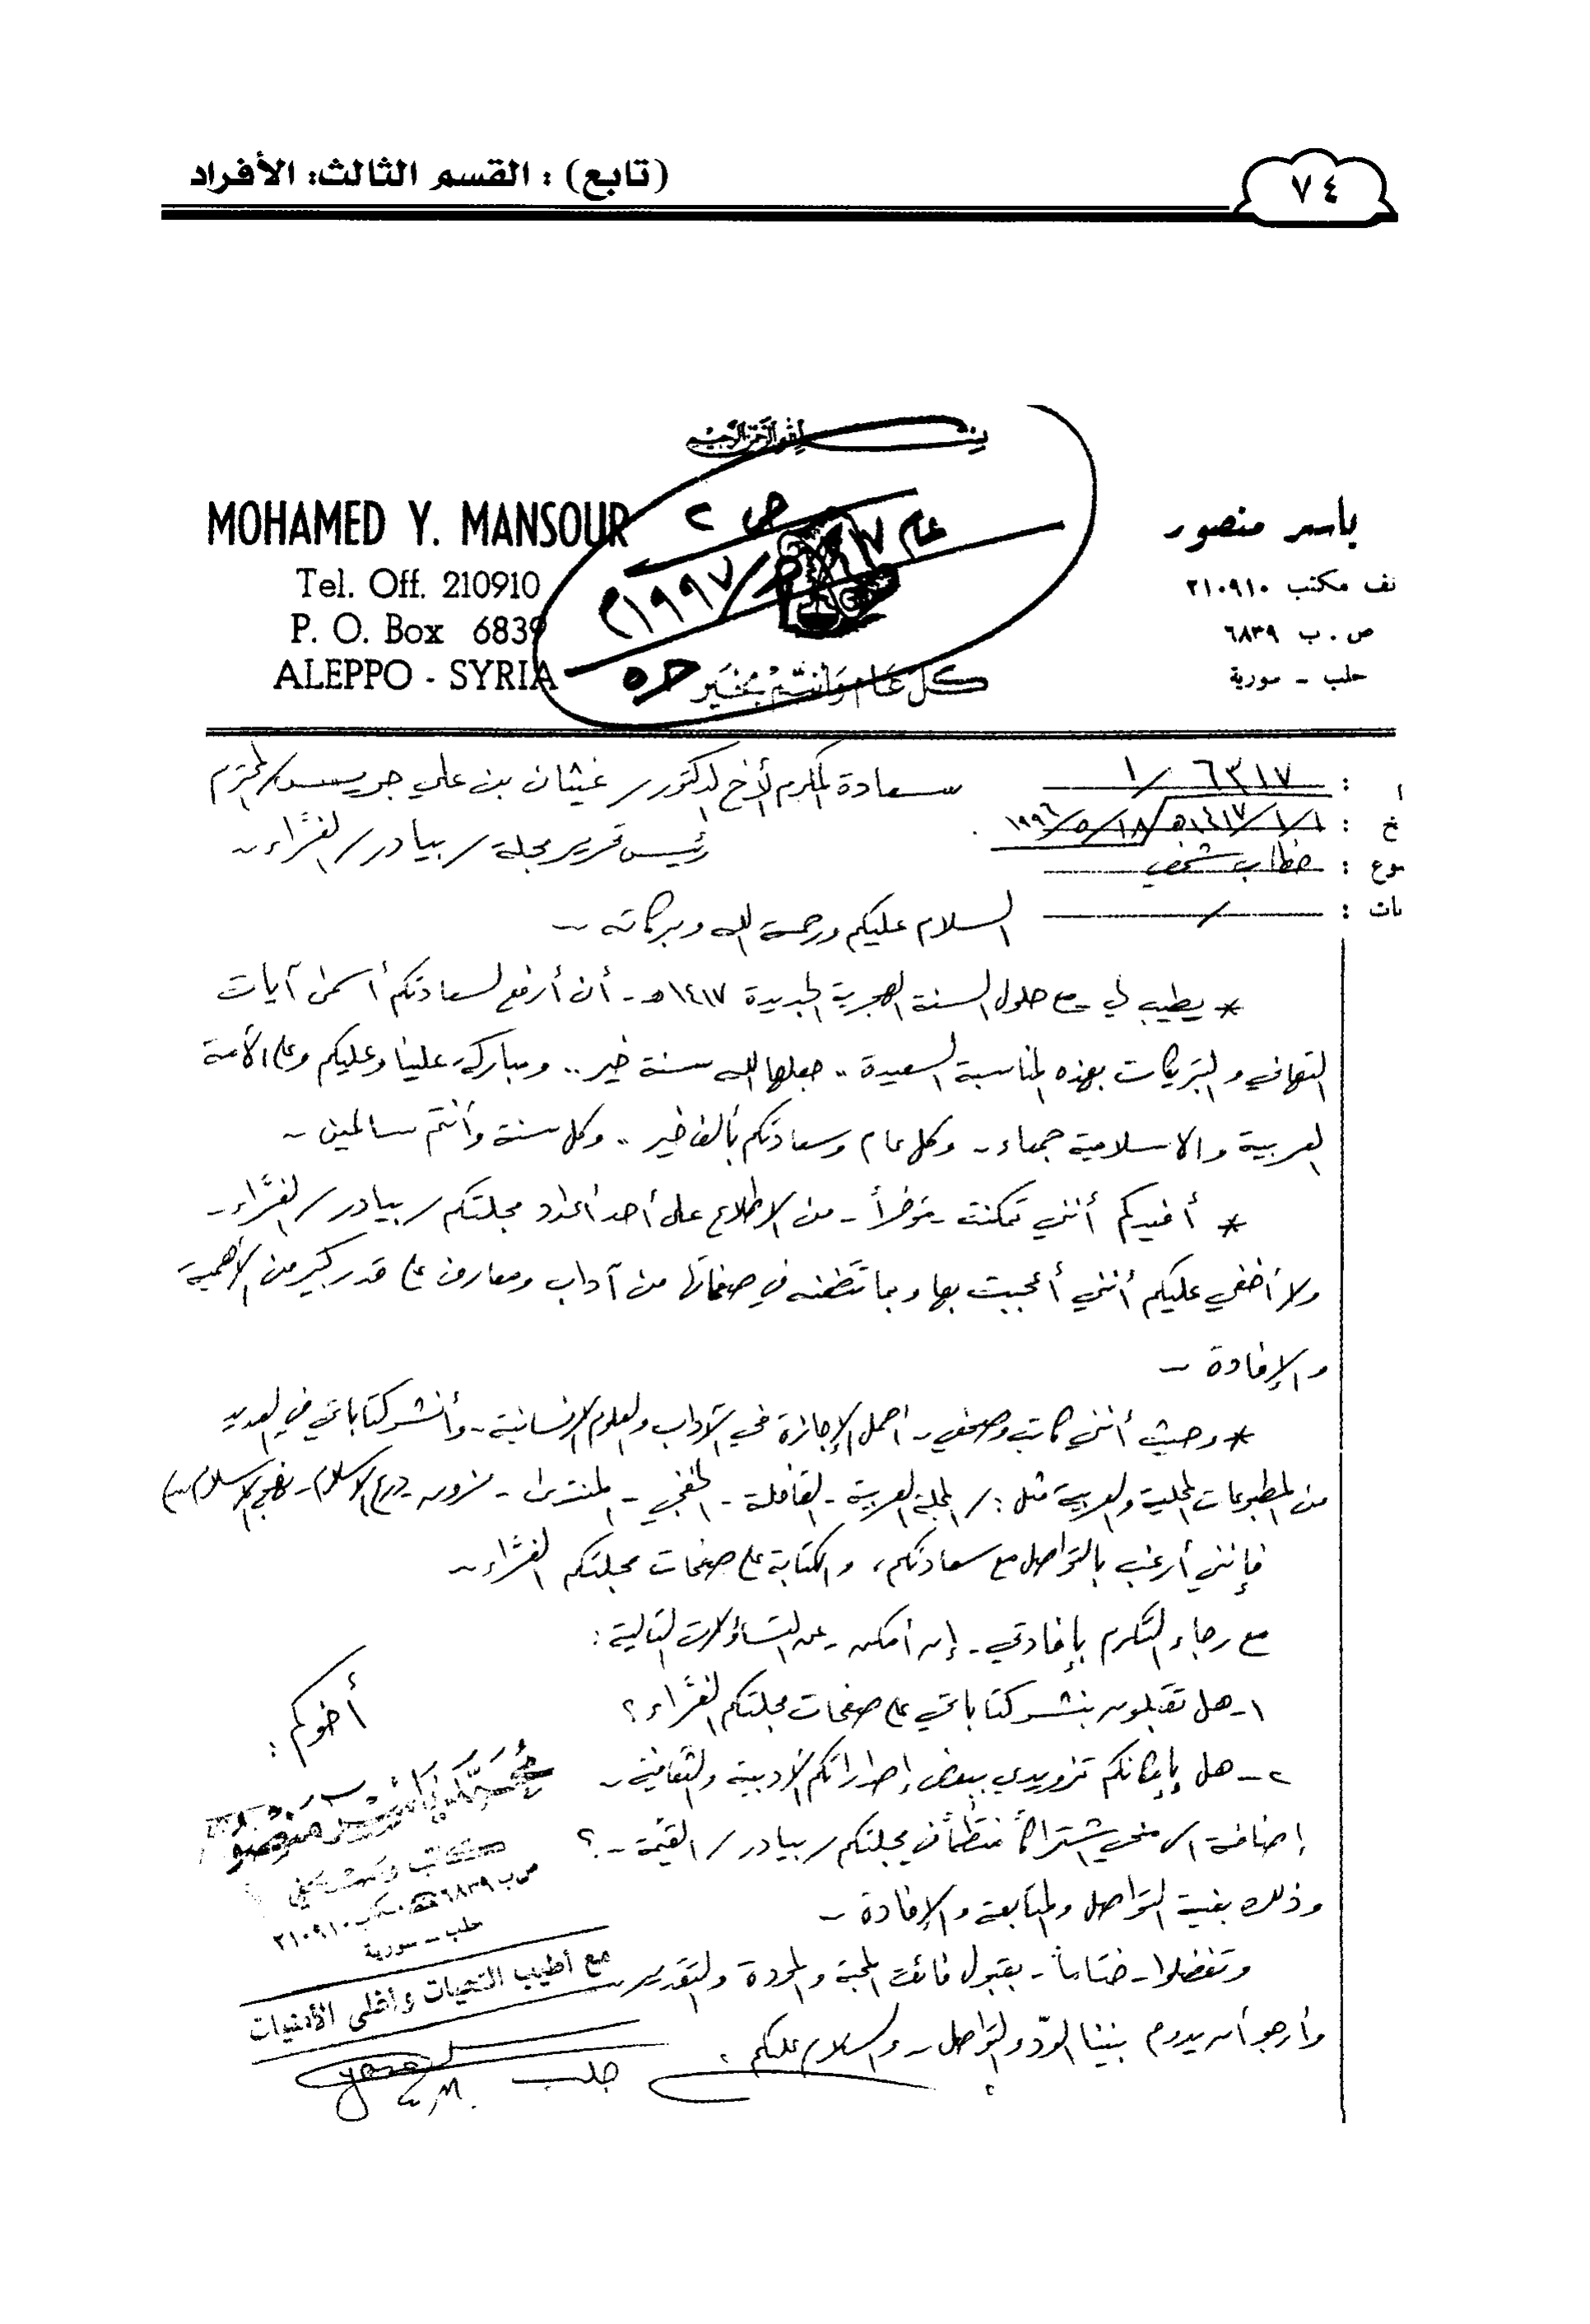 ٧٤
(تابع) : القسم الثالث: الأفراد
MOHAMED Y. MANSOUR
Tel. Off. 210910
P. O. Box 6839
ALEPPO - SYRIA
ياسر منصور
تف مكتب ٢١٠٩١٠
ص . ب ٦٨٣٩
حلب - سورية
كل عام وأنتم بخير
ص ٢
١٩٩٧م
: ٦٣١٧ / ١
خ : ١/١/١٤١٧هـ ١٨/٥/١٩٩٦
وع : خطاب شخصي
ات : /
سعادة المكرم الأخ الدكتور / غيثان بن علي جريس / المحترم
رئيس تحرير مجلة / بيادر / الغرَّاء ..
السلام عليكم ورحمة الله وبركاته ..
* يطيب لي - مع حلول السنة الهجرية الجديدة ١٤١٧هـ - أن أرفع لسعادتكم أسمى آيات
التهاني والتبريكات بهذه المناسبة السعيدة .. جعلها الله سنة خير .. ومباركة علينا وعليكم وعلى الأمة
العربية والاسلامية جمعاء .. وكل عام وسعادتكم بألف خير .. وكل سنة وأنتم سالمين ..
* أفيدكم أنني تمكنت - مؤخراً - من الاطلاع على أحد أعداد مجلتكم / بيادر / الغرَّاء -
ولا أخفي عليكم أنني أعجبت بها وبما تتضمنه في صفحاتها من آداب ومعارف على قدر كبير من الأهمية
والإفادة ..
* وحيث أنني كاتب وصحفي - أحمل الإجازة في الآداب والعلوم الإنسانية - وأنشر كتاباتي في العديد
من المطبوعات المحلية والعربية مثل : / المجلة العربية - القافلة - الخفجي - المنتدى - درع الاسلام - نهج الاسلام ..)
فإنني أرغب بالتواصل مع سعادتكم، والكتابة على صفحات مجلتكم الغرَّاء ..
مع رجاء التكرم بإفادتي - إن أمكن - عن التساؤلات التالية :
١- هل تقبلون بنشر كتاباتي على صفحات مجلتكم الغرَّاء ؟
٢- هل بإمكانكم تزويدي ببعض إصداراتكم الأدبية والثقافية ..
إضافة الى منحي اشتراكاً منتظماً في مجلتكم / بيادر / القيّمة .. ؟
وذلك بغية التواصل والمتابعة والإفادة ..
وتفضلوا - ختاماً - بقبول فائق المحبة والمودة والتقدير
وأرجو أن يدوم بيننا الودّ والتواصل .. والسلام عليكم .
أخوكم :
محمد ياسر منصور
كاتب وصحفي
ص ب ٦٨٣٩ مكتب ٢١٠٩١٠
حلب - سورية
مع أطيب التحيات وأغلى الأمنيات
حلب